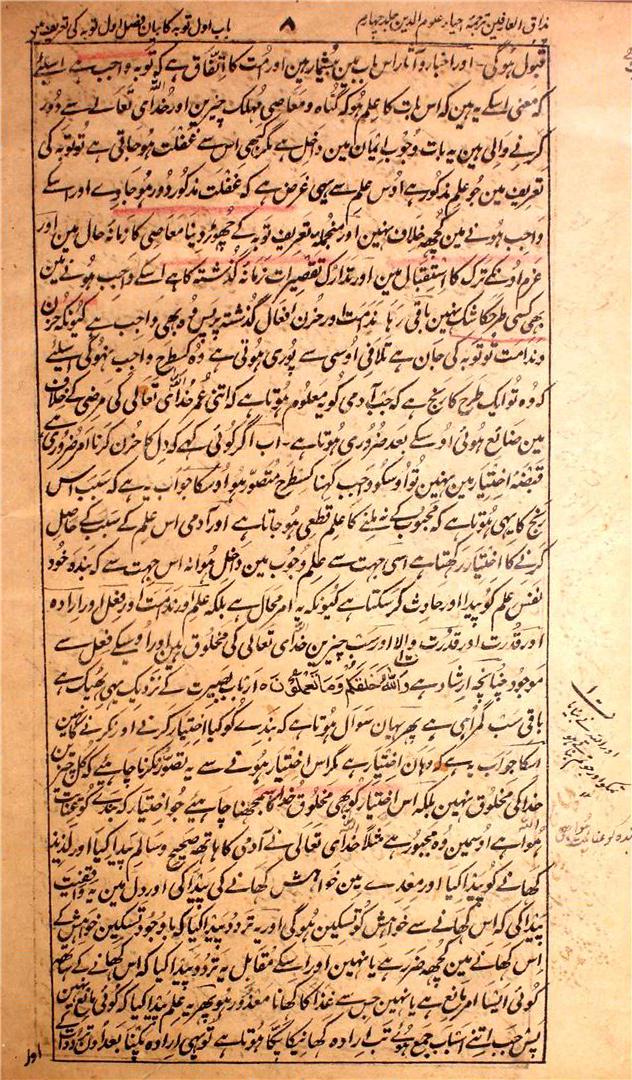 مذاق العارفین ترجمۂ احیاء علوم الدین جلد چہارم ۸ باب اول توبہ کا بیان فصل اول توبہ کی تعریف میں
قبول ہوگی۔ اور اخبار و آثار اس باب مین بیشمار ہین اور امت کا اتفاق ہے کہ توبہ واجب ہے اسلیے
کہ معنی اسکے یہ ہین کہ اس بات کا علم ہو کہ گناہ و معاصی مہلک چیزین اور خدای تعالے سے دور
کرنے والی ہین یہ بات وجوب ایمان مین داخل ہے مگر کبھی اس سے غفلت ہو جاتی ہے تو توبہ کی
تعریف مین جو علم مذکور ہے اوس علم سے یہی غرض ہے کہ غفلت مذکور دور ہو جاوے اور اسکے
واجب ہونے مین کچھ خلاف نہین اور منجملہ تعریف توبہ کے چھوڑ دینا معاصی کا زمانہ حال مین اور
عزم اونکے ترک کا استقبال مین اور تدارک تقصیرات زمانہ گذشتہ کا ہے اسکے واجب ہونے مین
بھی کسی طرح کا شک نہین باقی رہا ندامت اور حزن افعال گذشتہ پر پس وہ بھی واجب ہے کیونکہ حزن
و ندامت تو توبہ کی جان ہے تلافی اوسی سے پوری ہوتی ہے وہ کسطح واجب نہوگی اسلیے
کہ وہ تو ایک طرح کا رنج ہے کہ جب آدمی کو معلوم ہوتا ہے کہ اتنی عمر خدای تعالی کی مرضی کے خلاف
مین ضائع ہوئی اوسکے بعد ضروری ہوتا ہے۔ اب اگر کوئی کہے کہ دل کا حزن کرنا امر ضروری ہے
قبضۂ اختیار مین نہین تو اوسکو واجب کہنا کسطح متصور ہو اوسکا جواب یہ ہے کہ سبب اس
رنج کا یہی ہوتا ہے کہ محبوب کے نہ ملنے کا علم قطعی ہو جاتا ہے اور آدمی اس علم کے سبب کے حاصل
کرنے کا اختیار رکھتا ہے اسی جہت سے علم وجوب مین داخل ہوا نہ اس جہت سے کہ بندہ خود
نفس علم کو پیدا اور حادث کر سکتا ہے کیونکہ یہ امر محال ہے بلکہ علم اور ندامت اور فعل اور ارادہ
اور قدرت اور قدرت والا اور سب چیزین خدای تعالی کی مخلوق ہین اور اوسیکے فعل سے
موجود چنانچہ ارشاد ہے وَاللّٰہُ خَلَقَکُمْ وَمَا تَعْمَلُوْنَ ہ ارباب بصیرت کے نزدیک یہی ٹھیک ہے
باقی سب گمراہی ہے پھر یہان سوال ہوتا ہے کہ بندے کو کیا اختیار کرنے اور نکرنے کا نہین
اسکا جواب یہ ہے کہ وہان اختیار ہے مگر اس اختیار ہونے سے یہ تصور نکرنا چاہیے کہ کل چیزین
خدا کی مخلوق نہین بلکہ اس اختیار کو بھی مخلوق خدا سمجھنا چاہیے جو اختیار کہ بندے کو عنایت
ہوا ہے اوسمین وہ مجبور ہے مثلا خدای تعالی نے آدمی کا ہاتھ صحیح و سالم پیدا کیا اور لذیذ
کھانے کو پیدا کیا اور معدے مین خواہش کھانے کی پیدا کی اور دل مین یہ واقفیت
پیدا کی کہ اس کھانے سے خواہش کو تسکین ہوگی اور یہ تردد پیدا کیا کہ باوجود تسکین خواہش کے
اس کھانے مین کچھ ضرر ہے یا نہین اور اسکے مقابل یہ تردد پیدا کیا کہ اس کھانے کے ساتھ
کوئی ایسا امر مانع ہے یا نہین جس سے غذا کا کھانا معذور ہو پھر یہ علم پیدا کیا کہ کوئی مانع نہین
پس جب اتنے اسباب جمع ہوئے تب ارادہ کھانیکا پکا ہوتا ہے تو یہی ارادہ پکا بعد اون ترددات
اور
اور اللہ نے بنایا
تمکو اور جو تم